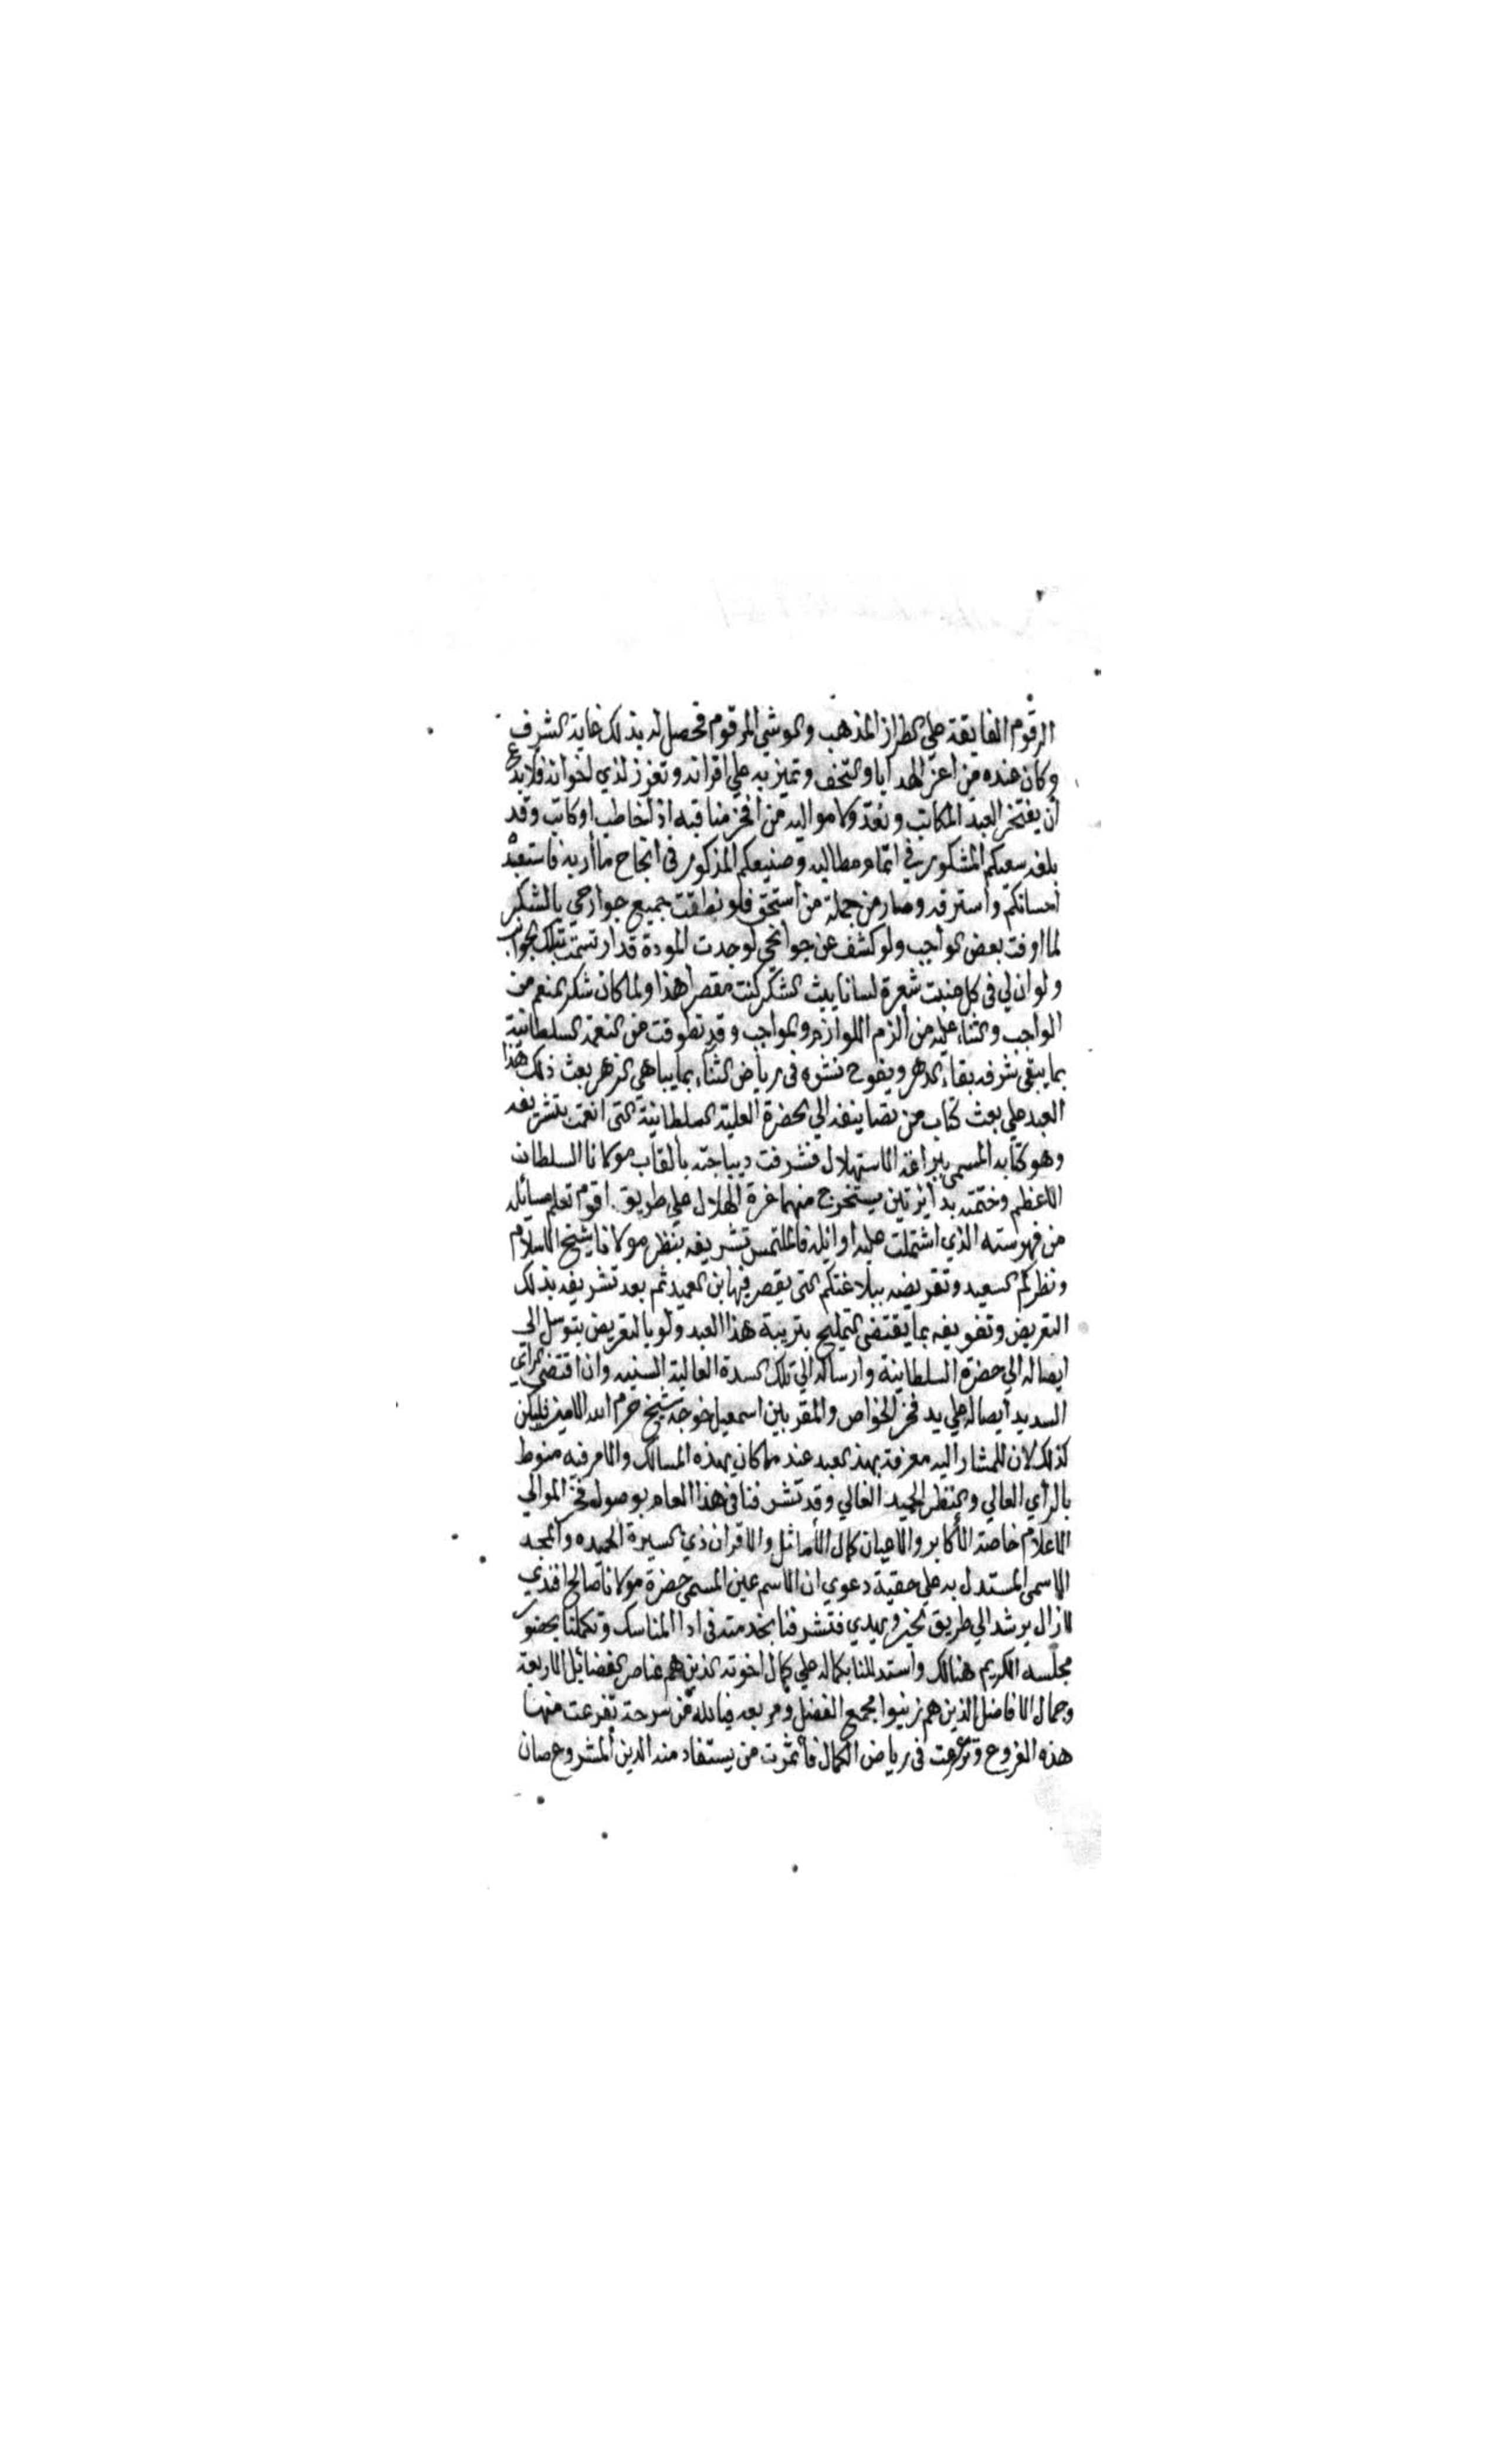 الرقوم الفايقة علي الطراز المذهب والوشي المرقوم فحصل له بذلك غاية الشرف
وكان عنده من اعز الهدايا والتحف وتميز به علي اقرانه وتعزز لذي اخوانه فلابدع
أن يفتخر العبد المكاتب ويعد ولا مواليه من افخر مناقبه اذ اخاطب او كاتب وقد
بلغه سعيكم المشكور في اتمام مطالبه وصنيعكم المذكور في انجاح مأاربه فاستعبده
احسانكم واسترقه وصار من جملة من استحق فلو نطقت جميع جوارحي بالشكر
لما اوفت بعض الواجب ولو كشف عن جوانحي لوجدت المودة قد ارتسمت بتلك الجوانب
ولو ان لي في كل منبت شعرة لسانا يبث الشكر كنت مقصرا هذا ولما كان شكر المنعم من
الواجب والثناء عليه من ألزم اللوازم والمواجب وقد تطوقت من النعمة السلطانية
بما يبقي شرفه بقاء الدهر ويفوح نشره في رياض الثناء بما يباهي الزهر بعث ذلك هذا
العبد علي بعث كتاب من تصانيفه الي الحضرة العلية السلطانية التي انعمت بتشريفه
وهو كتابه المسمي ببراعة الاستهلال فشرفت ديباجته بالقاب مولانا السلطان
الاعظم وختمته بدائرتين يستخرج منهما غرة الهلال علي طريق اقوم تعلم مسائله
من فهرسته الذي اشتملت عليه اوائله فالملتمس تشريفه بنظر مولانا شيخ الاسلام
ونظركم السعيد وتقريضه ببلاغتكم التي يقصر فيها ابن العميد ثم بعد تشريفه بذلك
التقريض وتفويفه بما يقتضي التمليح بتربية هذا العبد ولو بالتعريض يتوسل الي
ايصاله الي حضرة السلطانية وارساله الي تلك السدة العالية السنيه وان اقتضي الراي
السديد ايصاله علي يد فخر الخواص والمقربين اسمعيل خوجه شيخ حرم الله الامين فليكن
كذلك لان للمشار اليه معرفة بهذا العبد عند ما كان بهذه المسالك والامر فيه منوط
بالرأي العالي والنظر الجيد الغالي وقد تشرفنا في هذا العام بوصول فخر الموالي
الاعلام خاصة الأكابر والاعيان كمال الأماثل والاقران ذي السيرة الحميده والمجد
الاسمي المستدل به علي حقية دعوي ان الاسم عين المسمي حضرة مولانا صالح افندي
لازال يرشد الي طريق الخير ويهدي فتشرفنا بخدمته في ادا المناسك وتكملنا بحضور
مجلسه الكريم هنالك واستدللنا بكماله علي كمال اخوته الذين هم عناصر الفضائل الاربعة
وجمال الافاضل الذين هم زينوا مجمع الفضل ومربعه فيالله من سرحة تفرعت منها
هذه الفروع وترعرعت في رياض الكمال فأثمرت من يستفاد منه الدين المشروع صان